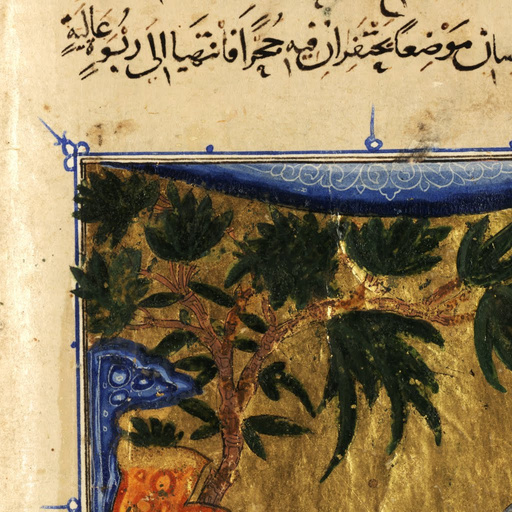 موضعًا يحتفران فيه جُحرًا فانتهيا الى ربوةٍ عاليةٍ